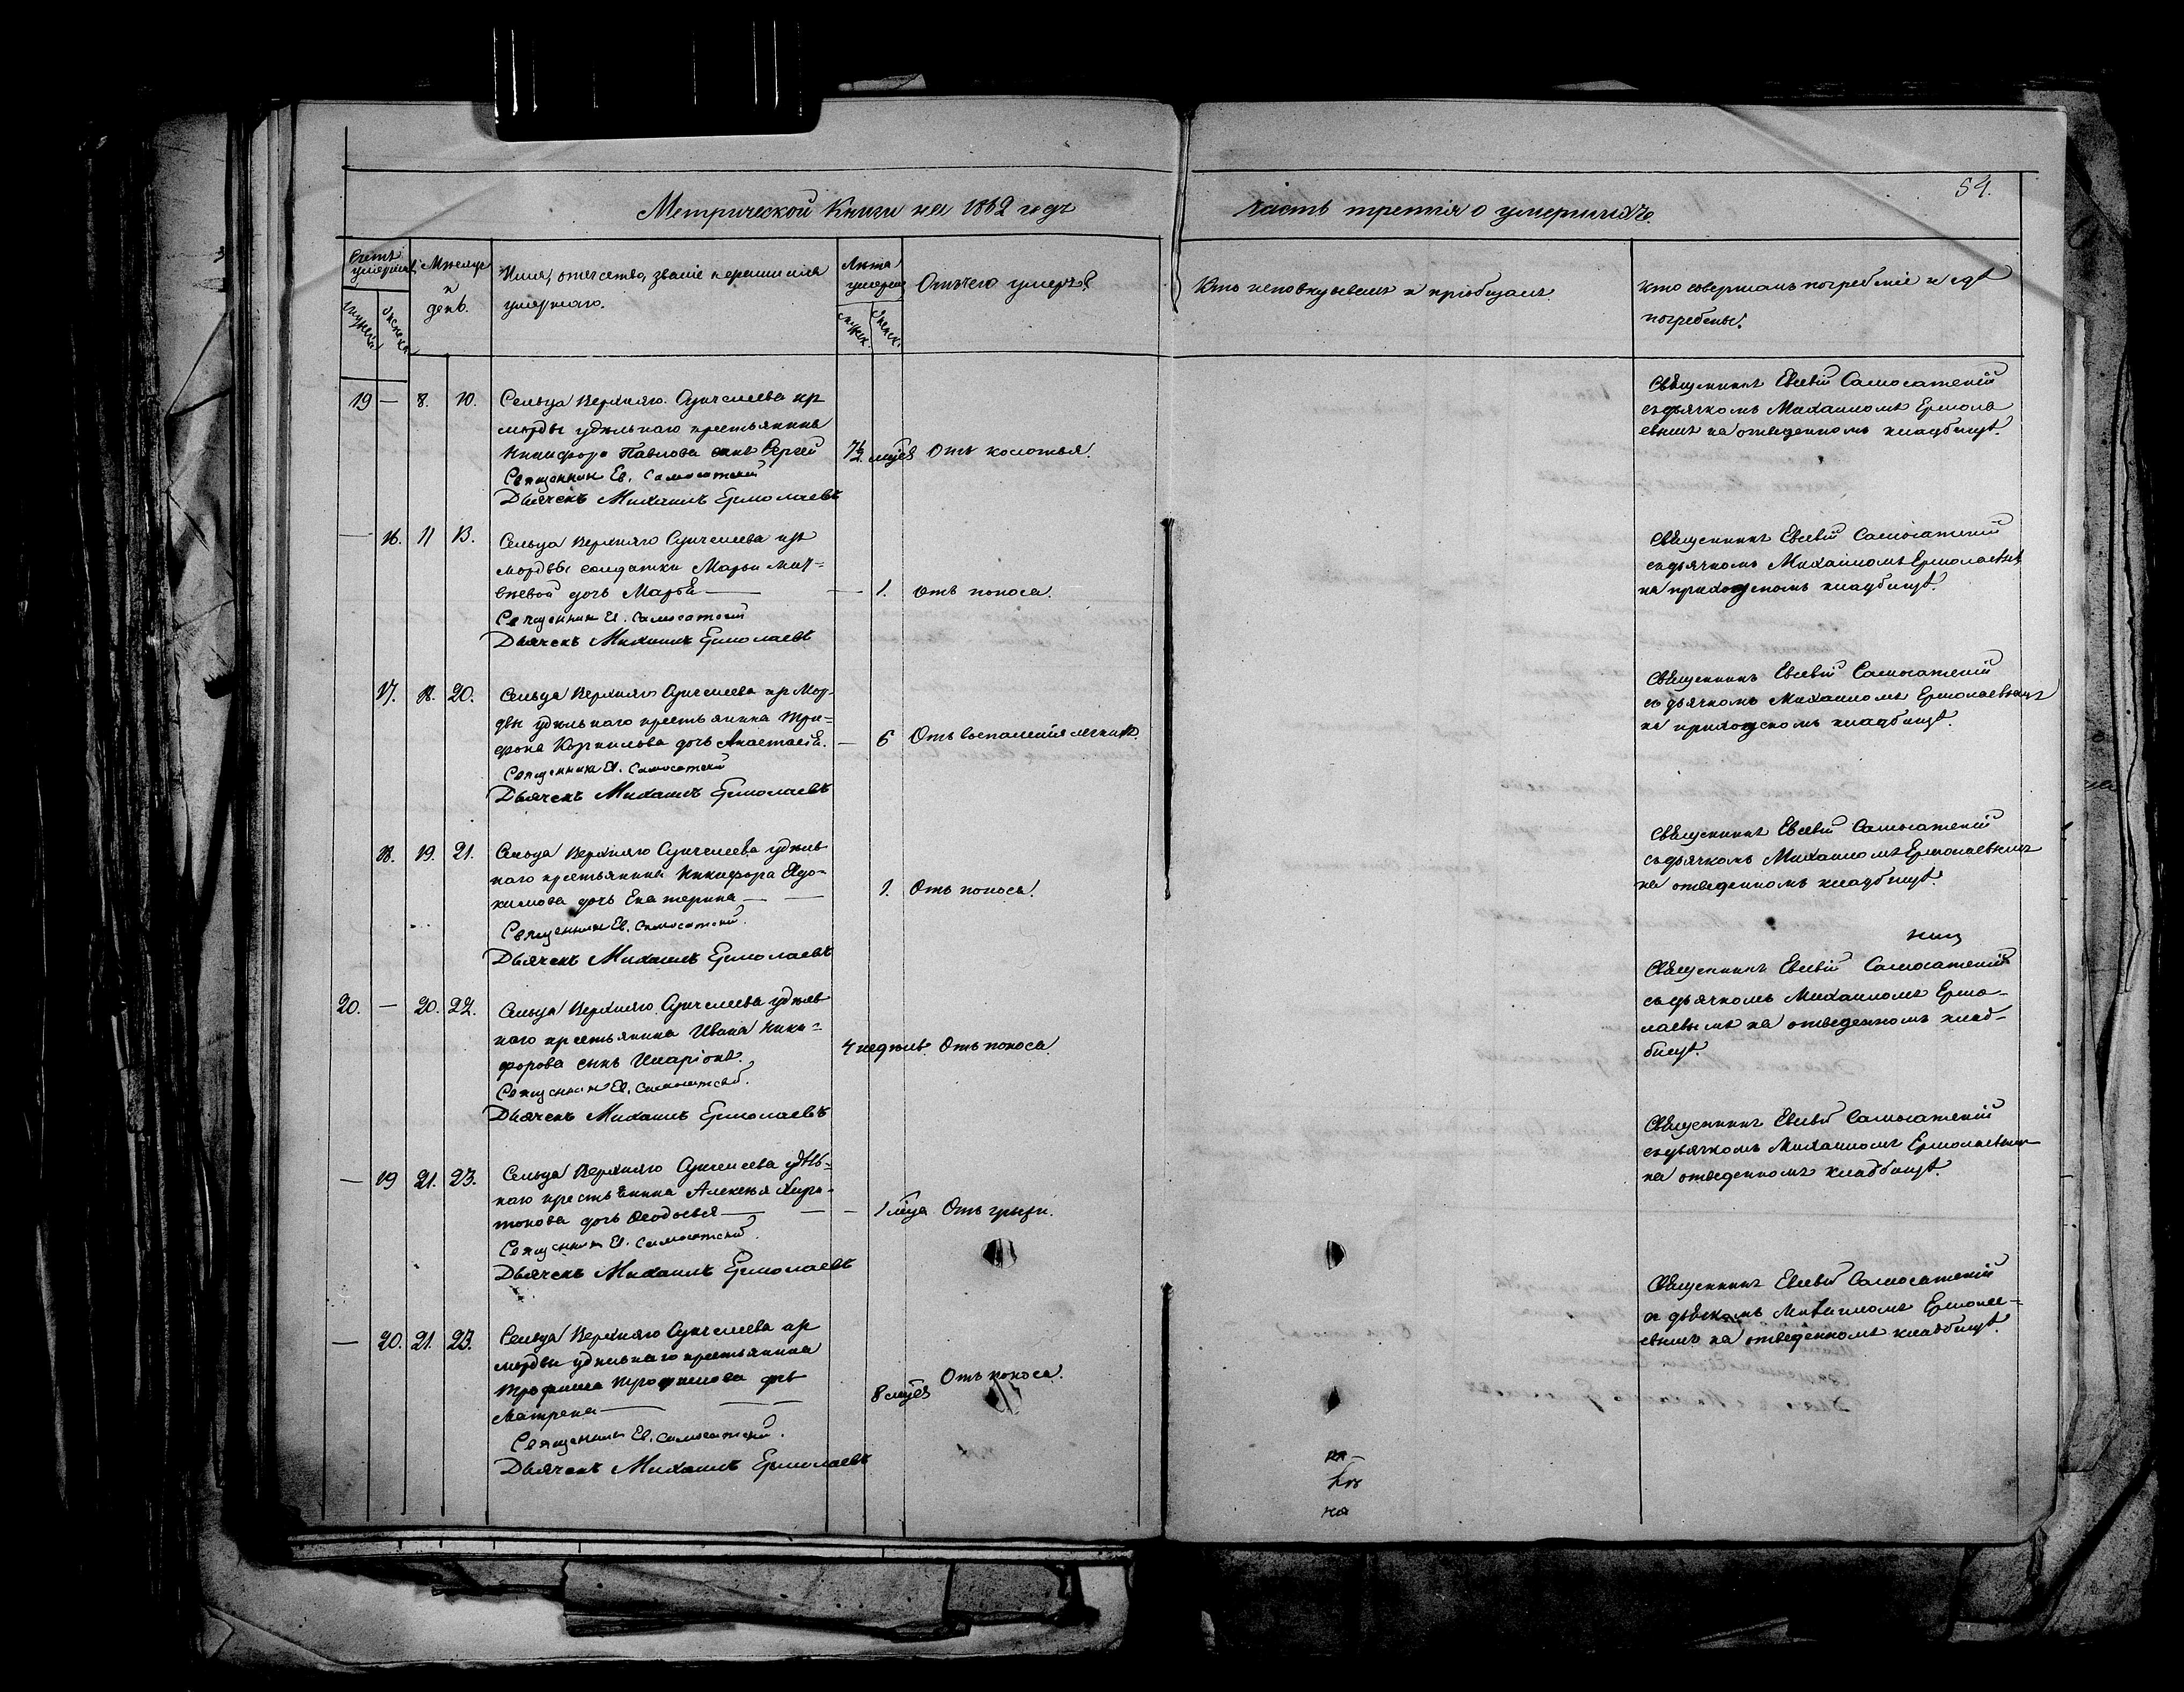 54.
Метрической Книги на 1862 годъ
часть третія о умершихъ.
Счетъ умершихъ
Мѣсяцъ и день.
Имя, отчество, званіе и фамилія
умершаго.
Лѣта умерша
Отъ чего умеръ?
Кто исповѣдывалъ и пріобщалъ.
кто совершалъ погребеніе и гдѣ
погребены.
19 — 8. 10. Сельца Верхняго Сунчелеева из
мордвы удѣльнаго крестьянина
Никифора Павлова сынъ Сергей
Священник Ев. Самосатский
Дьячекъ Михаилъ Ермолаевъ
мцевъ Отъ колотья.
Священникъ Евсевій Самосатскій
съ дьячкомъ Михаиломъ Ермола
евымъ на отведенномъ кладбищѣ.
— 16. 11 13. Сельца Верхняго Сунчелеева изъ
мордвы солдатки Марьи
дочь Марья —
Священник Ев. Самосатский
Дьячекъ Михаилъ Ермолаевъ
— 1. отъ поноса.
Священникъ Евсевій Самосатскій
съ дьячкомъ Михаиломъ Ермолаевымъ
на приходскомъ кладбищѣ.
17. 18. 20. Сельца Верхняго Сунчелеева из Мор-
двы удѣльнаго крестьянина Три-
фона Корнилова дочь Анастасія.
Священник Ев. Самосатский
Дьячекъ Михаилъ Ермолаевъ
— 6 Отъ воспаленія легкихъ.
Священникъ Евсевій Самосатскій
съ дьячкомъ Михаиломъ Ермолаевымъ
на приходскомъ кладбищѣ.
18. 19. 21. Сельца Верхняго Сунчелеева удѣль
наго крестьянина Никифора Евдо-
кимова дочь Екатерина —
Священник Ев. Самосатский.
Дьячекъ Михаилъ Ермолаевъ
1. Отъ поноса.
Священникъ Евсевій Самосатскій
съ дьячкомъ Михаиломъ Ермолаевымъ
на отведенномъ кладбищѣ.
20. — 20. 22. Сельца Верхняго Сунчелеева удѣль
наго крестьянина Ивана Ники-
форова сынъ Иларіонъ.
Священник Ев. Самосатский.
Дьячекъ Михаилъ Ермолаевъ
4 недѣль. Отъ поноса.
Священникъ Евсевій Самосатскій
съ дьячкомъ Михаиломъ Ермо-
лаевымъ на отведенномъ клад-
бищѣ.
— 19 21. 23. Сельца Верхняго Сунчелеева удѣль-
наго крестьянина Алексѣя Хари-
тонова дочь Ѳеодосья —
Священник Ев. Самосатский.
Дьячекъ Михаилъ Ермолаевъ
— 1 мца Отъ грызи.
Священникъ Евсевій Самосатскій
съ дьячкомъ Михаиломъ Ермолаевымъ
на отведенномъ кладбищѣ.
— 20. 21. 23. Сельца Верхняго Сунчелеева из
мордвы удѣльнаго крестьянина
Трофима Трофимова дочь
Матрена —
Священник Ев. Самосатский.
Дьячекъ Михаилъ Ермолаевъ
8 мцевъ Отъ поноса.
Священникъ Евсевій Самосатскій
съ дьячкомъ Михаиломъ Ермола-
евымъ на отведенномъ кладбищѣ.